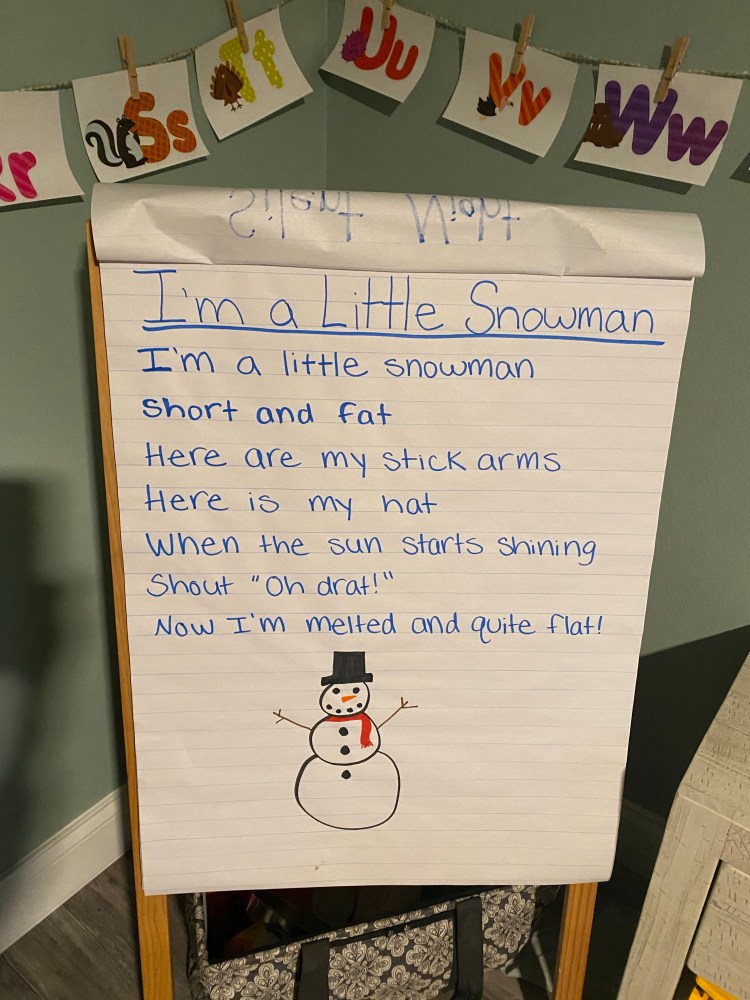 rr
Ss
Tt
Uu
Vv
Ww
Silent Night
I'm a Little Snowman
I'm a little snowman
short and fat
Here are my stick arms
Here is my hat
When the sun starts shining
Shout "Oh drat!"
Now I'm melted and quite flat!